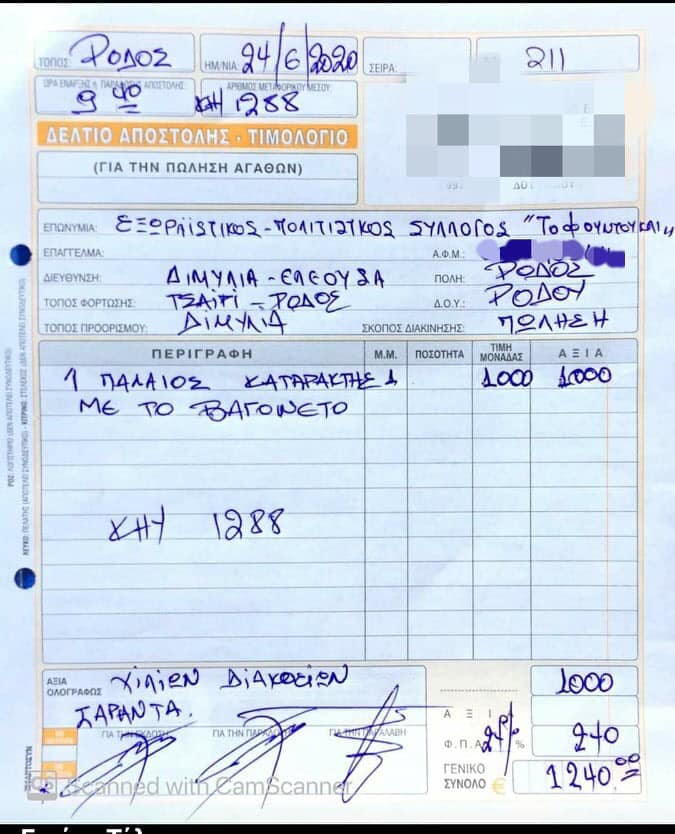 ΤΟΠΟΣ: ΡΟΔΟΣ ΗΜ/ΝΙΑ: 24/6/2020 ΣΕΙΡΑ: 211
ΩΡΑ ΕΝΑΡΞΗΣ ΠΑΡΑΔΟΣΗΣ ΑΠΟΣΤΟΛΗΣ: ΑΡΙΘΜΟΣ ΜΕΤΑΦΟΡΙΚΟΥ ΜΕΣΟΥ:
9 40 ΚΗΥ 1288
ΔΕΛΤΙΟ ΑΠΟΣΤΟΛΗΣ - ΤΙΜΟΛΟΓΙΟ
(ΓΙΑ ΤΗΝ ΠΩΛΗΣΗ ΑΓΑΘΩΝ)
ΕΠΩΝΥΜΙΑ: ΕΞΩΡΑΪΣΤΙΚΟΣ-ΠΟΛΙΤΙΣΤΙΚΟΣ ΣΥΛΛΟΓΟΣ "ΤΟ ΦΟΥΝΤΟΥΚΛΙ"
ΕΠΑΓΓΕΛΜΑ: Α.Φ.Μ.:
ΔΙΕΥΘΥΝΣΗ: ΔΙΜΥΛΙΑ-ΕΛΕΟΥΣΑ ΠΟΛΗ: ΡΟΔΟΣ
ΤΟΠΟΣ ΦΟΡΤΩΣΗΣ: ΤΣΑΪΡΙ-ΡΟΔΟΣ Δ.Ο.Υ.: ΡΟΔΟΥ
ΤΟΠΟΣ ΠΡΟΟΡΙΣΜΟΥ: ΔΙΜΥΛΙΑ ΣΚΟΠΟΣ ΔΙΑΚΙΝΗΣΗΣ: ΠΩΛΗΣΗ
ΠΕΡΙΓΡΑΦΗ Μ.Μ. ΠΟΣΟΤΗΤΑ ΤΙΜΗ ΜΟΝΑΔΑΣ ΑΞΙΑ
1 ΠΑΛΑΙΟΣ ΚΑΤΑΡΑΚΤΗΣ 1 1000 1000
ΜΕ ΤΟ ΒΑΓΟΝΕΤΟ
ΚΗΥ 1288
ΑΞΙΑ ΟΛΟΓΡΑΦΩΣ ΧΙΛΙΩΝ ΔΙΑΚΟΣΙΩΝ 1000
ΣΑΡΑΝΤΑ.
ΓΙΑ ΤΗΝ ΕΚΔΟΣΗ ΓΙΑ ΤΗΝ ΠΑΡΑΔΟΣΗ ΓΙΑ ΤΗΝ ΠΑΡΑΛΑΒΗ ΑΞΙΑ
Φ.Π.Α. 24% % 240
ΓΕΝΙΚΟ ΣΥΝΟΛΟ € 1240.00
Scanned with CamScanner